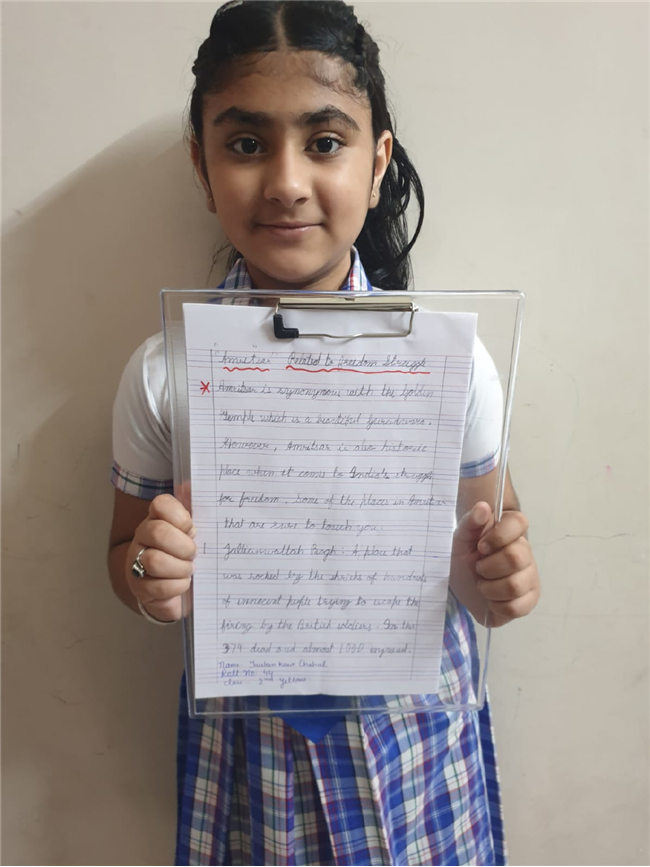 "Amritsar" Related to freedom Struggle
* Amritsar is synonymous with the Golden
Temple which is a beautiful Gurudwara.
However, Amritsar is also historic
place when it come to India's struggle
for freedom. Some of the places in Amritsar
that are sure to touch you.
1 Jallianwallah Bagh: A place that
was rocked by the shrieks of hundreds
of innocent people trying to escape the
firing by the British soldiers. For the
379 dead and almost 1000 injured.
Name Kaur
Roll No. 44
Class 2nd Yellow